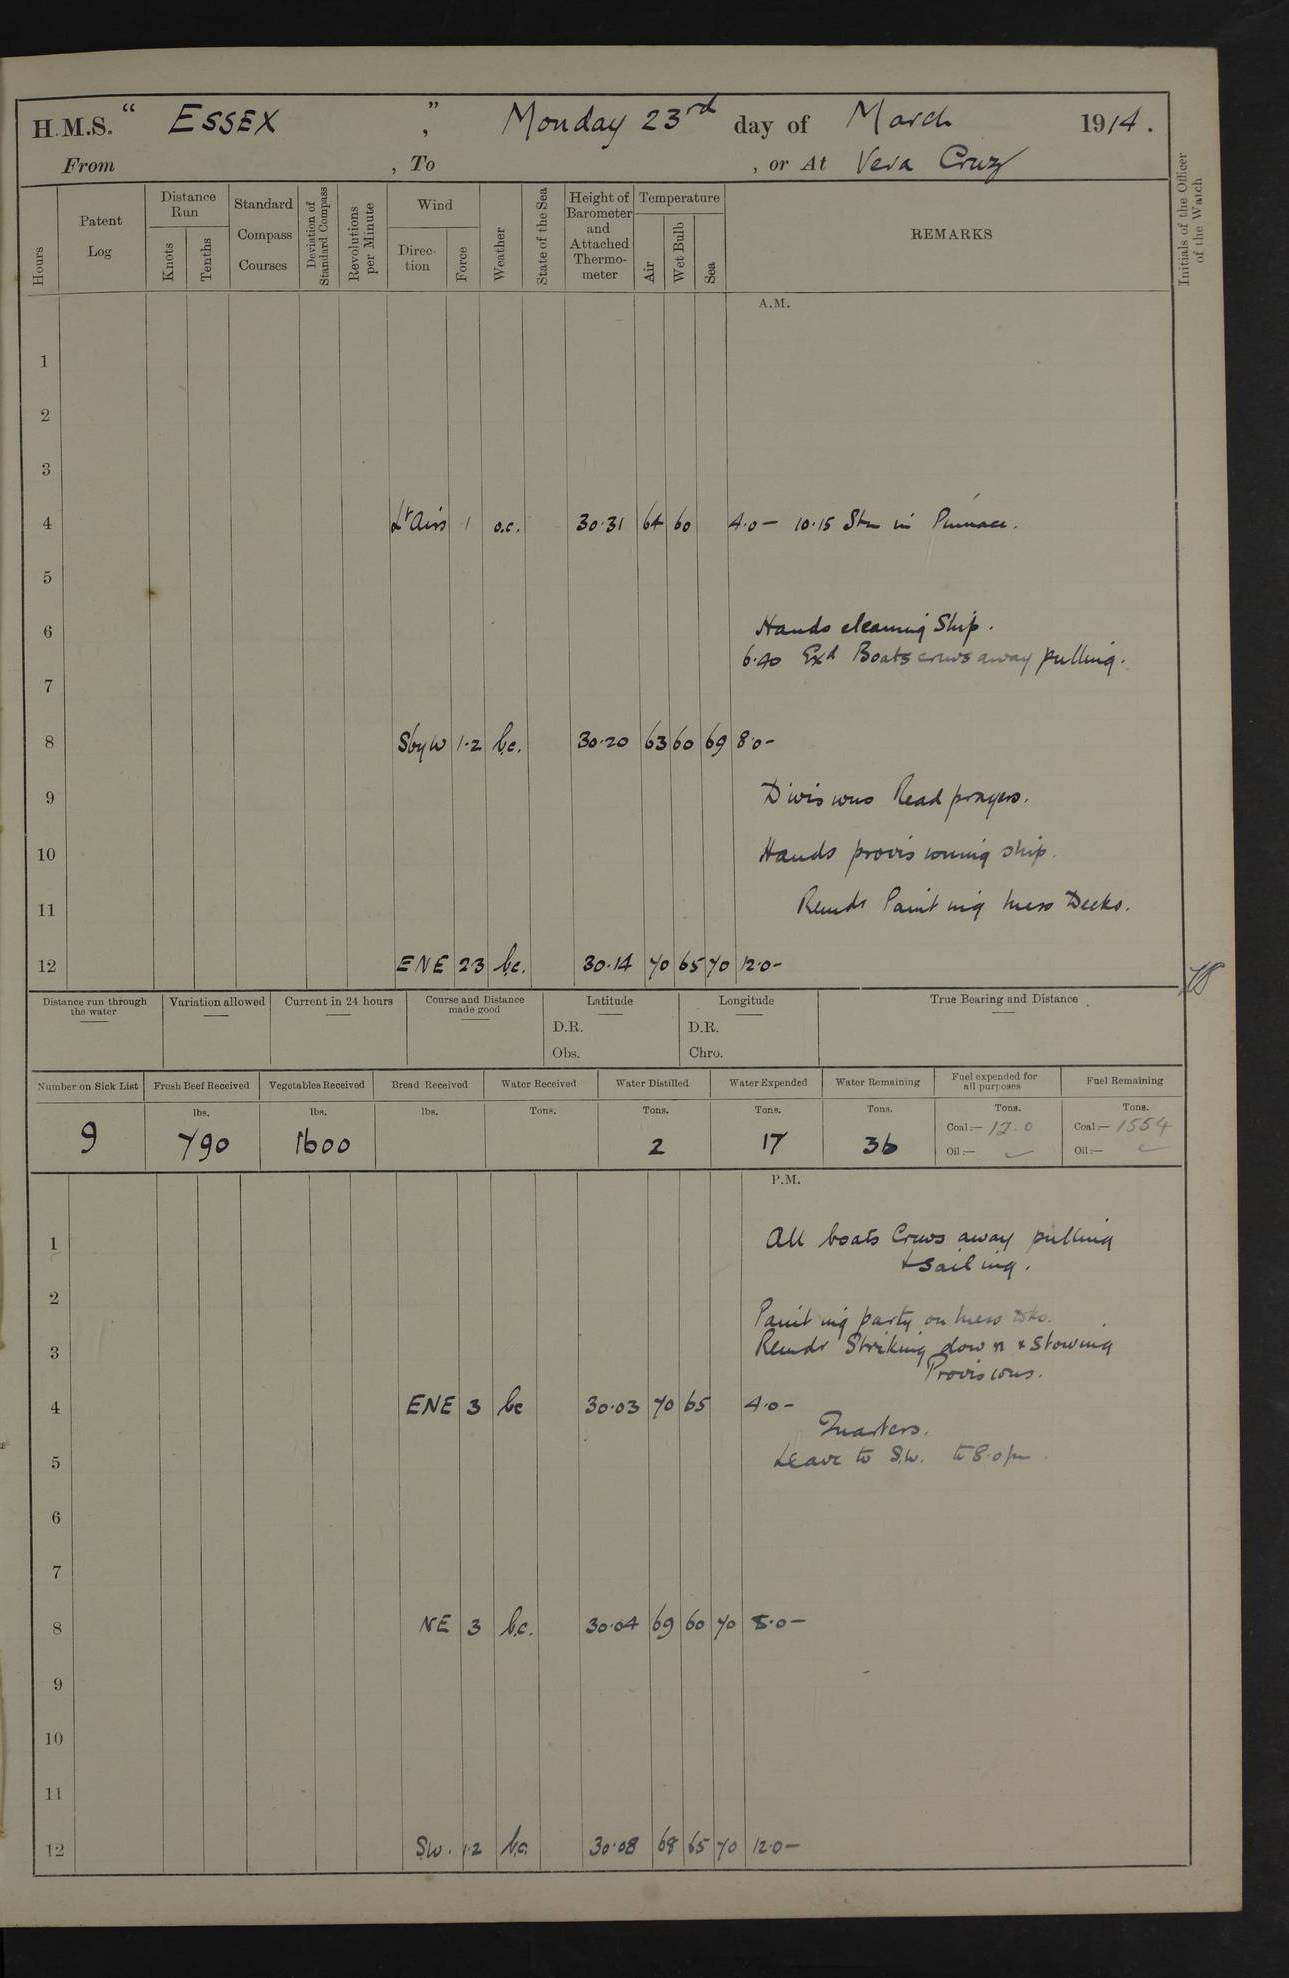 H.M.S. “ ESSEX ” , Monday 23rd day of March 1914.
From , To , or At Vera Cruz
Hours
Patent Log
Distance Run
Knots
Tenths
Standard Compass Courses
Deviation of Standard Compass
Revolutions per Minute
Wind
Direction
Force
Weather
State of the Sea
Height of Barometer and Attached Thermometer
Temperature
Air
Wet Bulb
Sea
REMARKS
Initials of the Officer of the Watch
A.M.
1
2
3
4 Lt Airs 1 o.c. 30.31 64 60 4.0— 10.15 Stm in Pinnace.
5
6 Hands cleaning Ship.
6.40 Exd Boats crews away pulling.
7
8 SbyW 1.2 b.c. 30.20 63 60 69 8.0—
9 Divisions Read prayers.
10 Hands provisioning ship.
11 Remdr Painting mess Decks.
12 ENE 2.3 b.c. 30.14 70 65 70 12.0—
Distance run through the water
Variation allowed
Current in 24 hours
Course and Distance made good
Latitude
D.R.
Obs.
Longitude
D.R.
Chro.
True Bearing and Distance
Number on Sick List
Fresh Beef Received
Vegetables Received
Bread Received
Water Received
Water Distilled
Water Expended
Water Remaining
Fuel expended for all purposes
Fuel Remaining
lbs. lbs. lbs. Tons. Tons. Tons. Tons. Tons. Tons.
9 790 1600 2 17 36
Coal:— 12.0
Oil:—
Coal:— 1554
Oil:—
P.M.
1 All boats Crews away pulling
& sailing.
2 Painting party on mess dks.
3 Remdr Striking down & stowing
Provisions.
4 ENE 3 bc 30.03 70 65 4.0—
Quarters.
5 Leave to S.W. to 8.0 pm
6
7
8 NE 3 b.c. 30.04 69 60 70 8.0—
9
10
11
12 S.W. 1.2 b.c. 30.08 68 65 70 12.0—